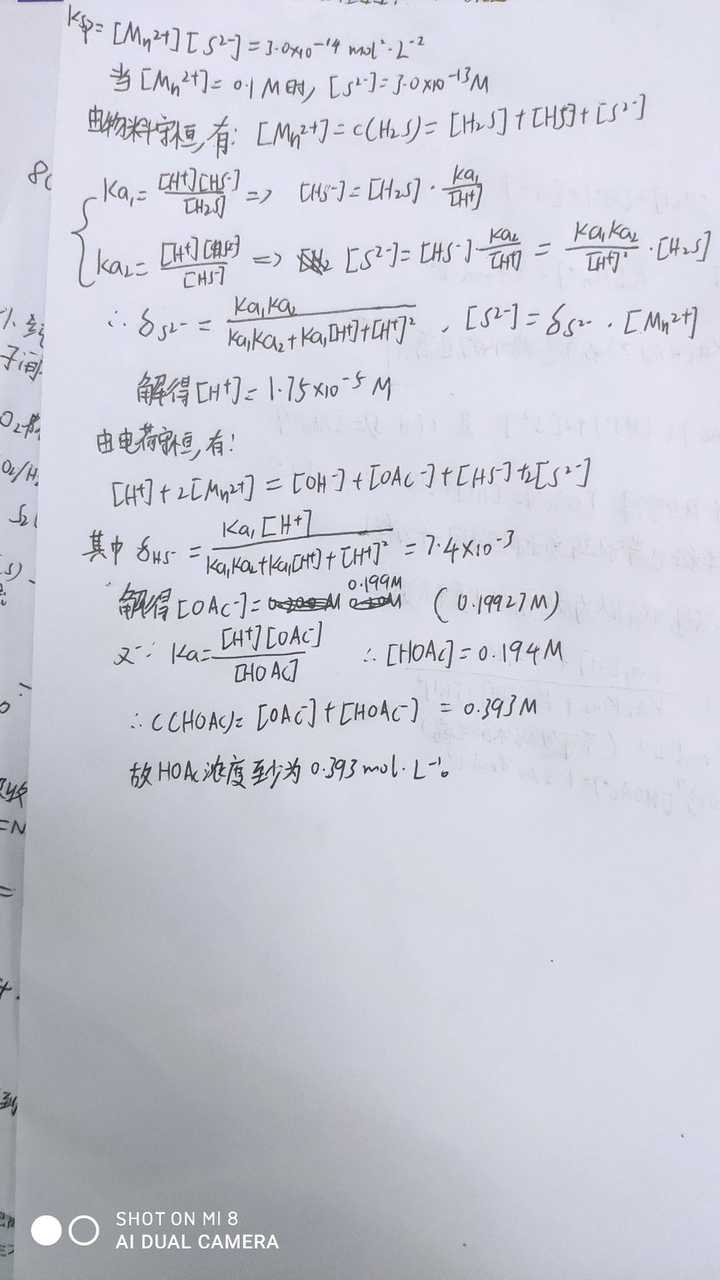 Ksp=[Mn²⁺][S²⁻]=3.0×10⁻¹⁴ mol²·L⁻²
当[Mn²⁺]=0.1M时,[S²⁻]=3.0×10⁻¹³M
由物料守恒,有:[Mn²⁺]=c(H₂S)=[H₂S]+[HS⁻]+[S²⁻]
Ka₁=[H⁺][HS⁻]/[H₂S] => [HS⁻]=[H₂S]·Ka₁/[H⁺]
Ka₂=[H⁺][HS⁻]/[HS⁻] => [S²⁻]=[HS⁻]·Ka₂/[H⁺]=Ka₁Ka₂/[H⁺]²·[H₂S]
∴δS²⁻=Ka₁Ka₂/Ka₁Ka₂+Ka₁[H⁺]+[H⁺]²,[S²⁻]=δS²⁻·[Mn²⁺]
解得[H⁺]=1.75×10⁻⁵M
由电荷守恒,有:
[H⁺]+2[Mn²⁺]=[OH⁻]+[OAc⁻]+[HS⁻]+2[S²⁻]
其中δHS⁻=Ka₁[H⁺]/Ka₁Ka₂+Ka₁[H⁺]+[H⁺]²=7.4×10⁻³
解得[OAc⁻]=0.199M (0.19927M)
又∵Ka=[H⁺][OAc⁻]/[HOAc] ∴[HOAc]=0.194M
∴C(HOAc)=[OAc⁻]+[HOAc⁻]=0.393M
故HOAc浓度至少为0.393mol·L⁻¹。
SHOT ON MI 8
AI DUAL CAMERA